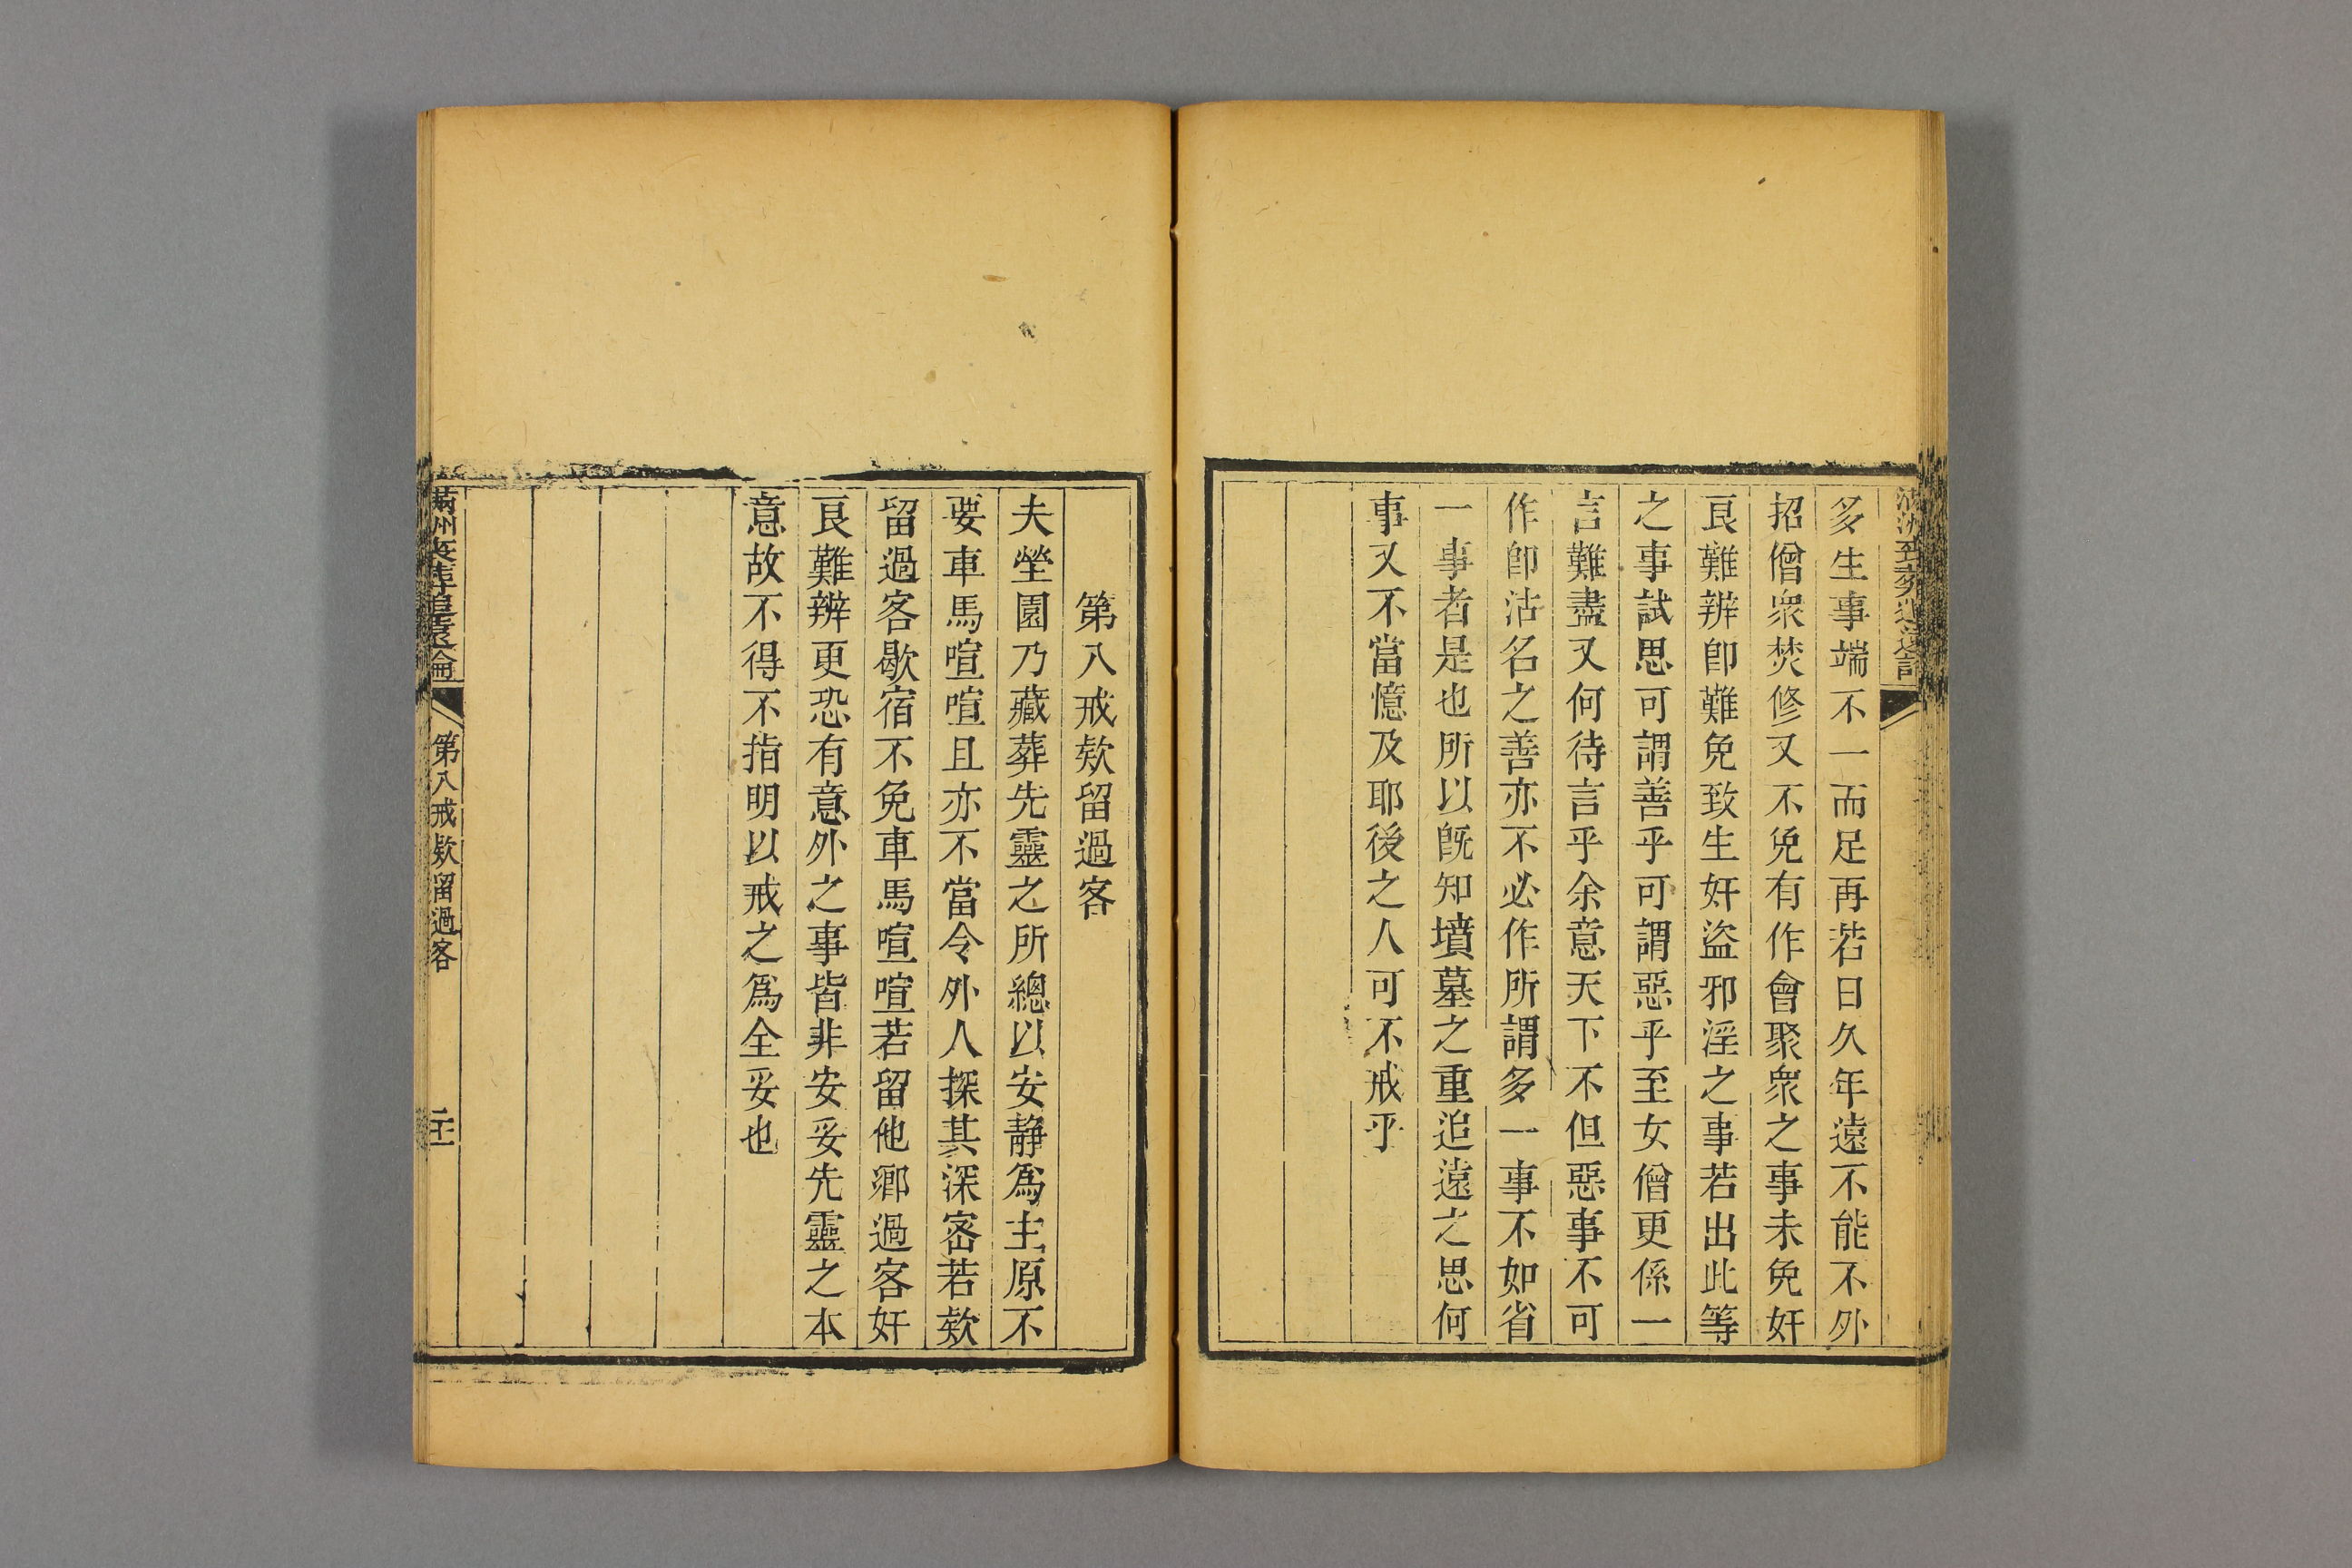 多生事端不一而足再若日久年遠不能不外
招僧衆焚修又不免有作會聚衆之事未免奸
良難辨卽難免致生奸盜邪淫之事若出此等
之事試思可謂善乎可謂惡乎至女僧更係一
言難盡又何待言乎余意天下不但惡事不可
作卽沽名之善亦不必作所謂多一事不如省
一事者是也所以旣知墳墓之重追遠之思何
事又不當憶及耶後之人可不戒乎
第八戒欵留過客
夫塋園乃藏葬先靈之所總以安靜爲主原不
要車馬喧喧且亦不當令外人探其深宻若欵
留過客歇宿不免車馬喧喧若留他鄉過客奸
良難辨更恐有意外之事皆非安妥先靈之本
意故不得不指明以戒之爲全妥也
第八戒欵留過客